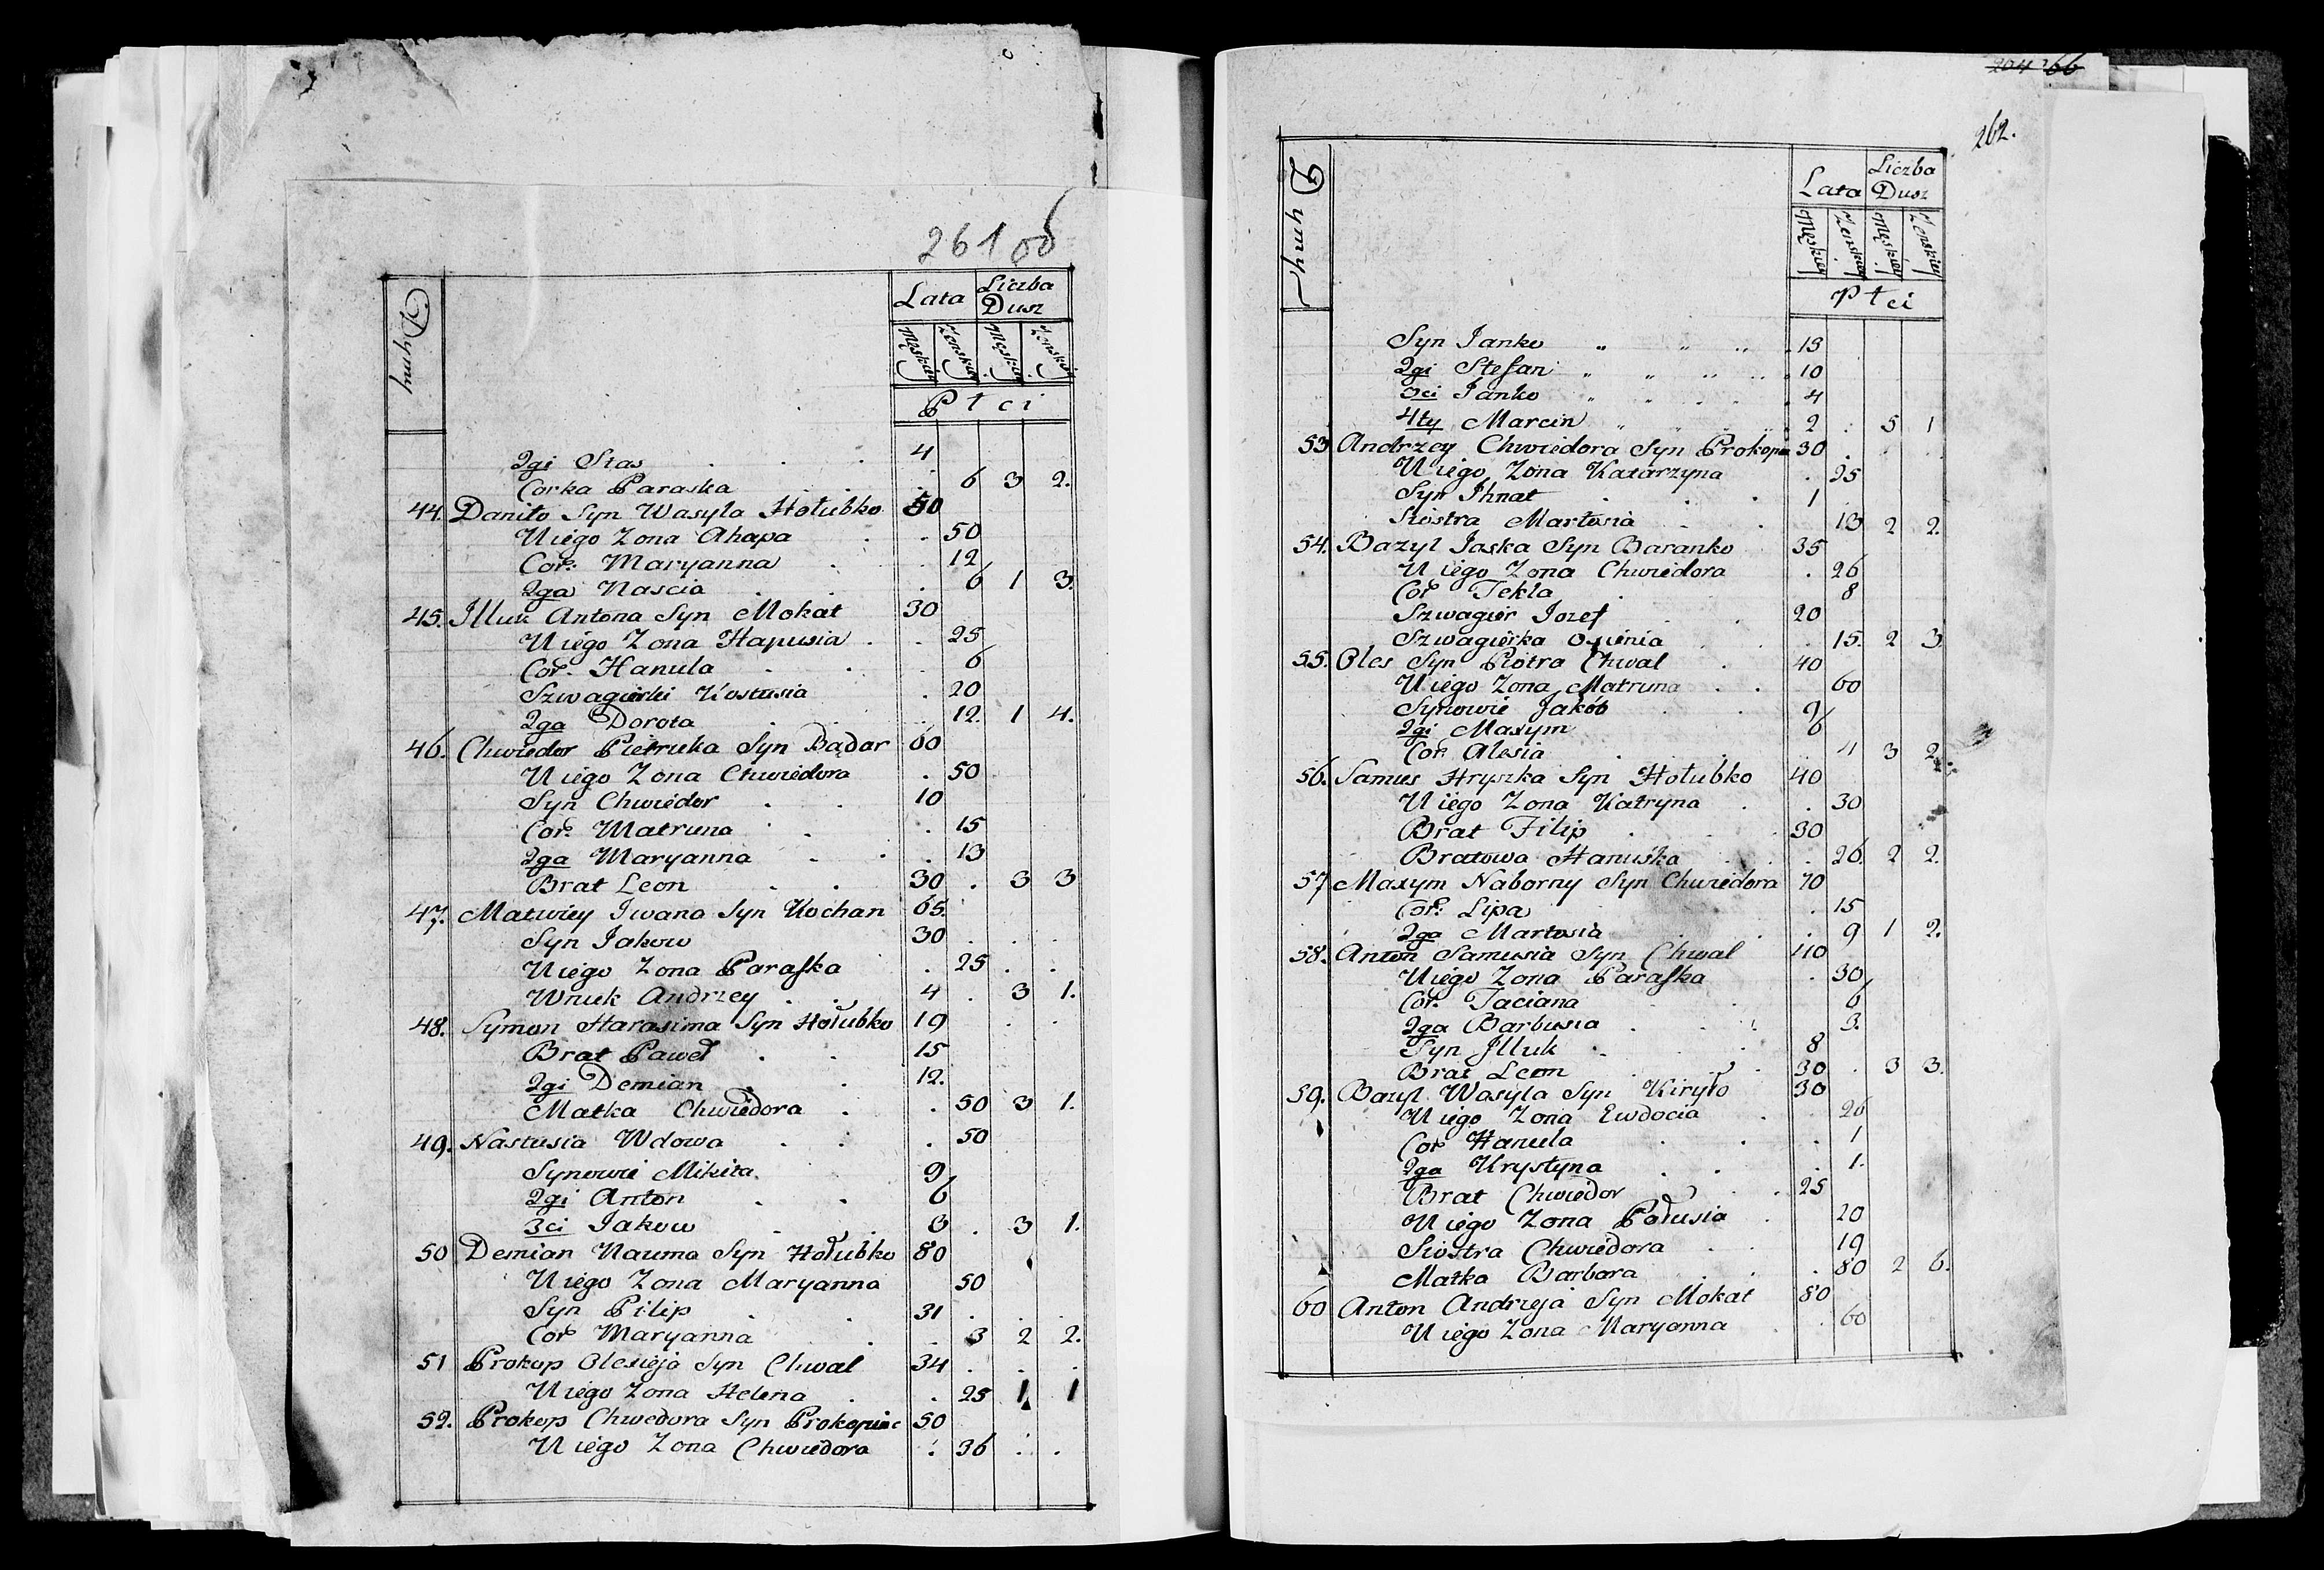 261 об
Dymy
Lata
Liczba Dusz
Męskiey Zenskiey Męskiey Zenskiey
Płci
2gi Stas 4
Corka Paraska 6 3 2.
44. Daniło Syn Wasyla Hołubko 50
U iego Zona Ahapa 50
Cor: Maryanna 12
2ga Nascia 6 1 3.
45. Illuk Antona Syn Mokat 30
U iego Zona Hapusia 25
Cor. Hanula 6
Szwagierki Kostusia 20
2ga Dorota 12. 1 4.
46. Chwiedor Pietruka Syn Bądar 60
U iego Zona Chwiedora 50
Syn Chwiedor 10
Cor: Matruna 15
2ga Maryanna 13
Brat Leon 30 3 3
47. Matwiey Iwana Syn Kochan 65.
Syn Jakow 30
U iego Zona Paraska 25
Wnuk Andrzey 4 3 1.
48. Symon Harasima Syn Hołubko 19
Brat Paweł 15
2gi Demian 12.
Matka Chwiedora 50 3 1.
49. Nastusia Wdowa 50
Synowie Mikita 9
2gi Anton 6
3ci Jakow 3 3 1.
50 Demian Nauma Syn Hołubko 80
U iego Zona Maryanna 50
Syn Pilip 31
Cor Maryanna 3 2 2.
51 Prokop Olesieja Syn Chwal 34
U iego Zona Helena 25 1 1
52. Prokop Chwedora Syn Prokopiuc 50
U iego Zona Chwiedora 36
204 266
262.
Dymy
Lata
Liczba Dusz
Męskiey Zenskiey Męskiey Zenskiey
Płci
Syn Janko 13
2gi Stefan 10
3ci Janko 4
4ty Marcin 2 5 1
53 Andrzey Chwiedora Syn Prokopiu 30
U iego Zona Katarzyna 25
Syn Ihnat 1
Siostra Martosia 13 2 2.
54. Bazyl Jaska Syn Baranko 35
U iego Zona Chwiedora 26
Cor Tekla 8
Szwagier Jozef 20
Szwagierka 15. 2 3
55. Oles Syn Piotra Chwal 40
U iego Zona Matruna 60
Synowie Jakób 9
2gi Maxym 6
Cor. Alesia 4 3 2.
56. Samus Hryszka Syn Hołubko 40
U iego Zona Katryna 30
Brat Filip 30
Bratowa Hanuśka 26. 2 2.
57 Maxym Naborny Syn Chwiedora 70
Cor: Lipa 15
2ga Martosia 9 1 2.
58. Anton Samusia Syn Chwal 40
U iego Zona Paraska 30
Cor. Taciana 6
2ga Barbusia 3.
Syn Illuk 8
Brat Leon 30 3 3.
59. Bazyl Wasyla Syn Kiryło 30
U iego Zona Ewdocia 26
Cor Hanula 1
2ga Krystyna 1.
Brat Chwiedor 25
U iego Zona Połusia 20
Siostra Chwiedora 19
Matka Barbara 80 2 6.
60 Anton Andrzeja Syn Mokat 80
U iego Zona Maryanna 60